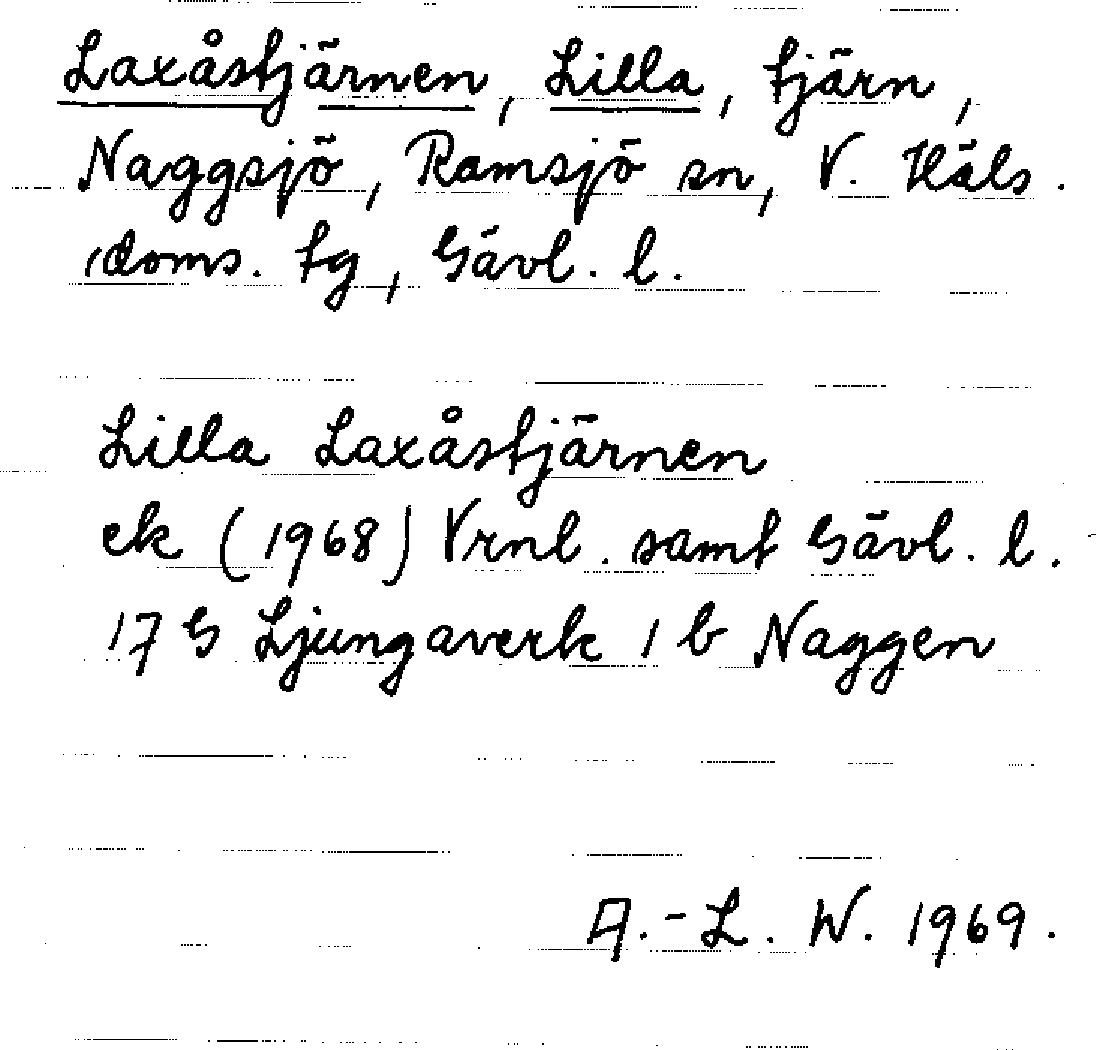 Laxåstjärnen, Lilla, tjärn,
Naggsjö, Ramsjö sn, V. Häls.
doms. tg, Gävl. l.
Lilla Laxåstjärnen
ek (1968) Vrnl. samt Gävl. l.
17 G Ljungaverk 1 b Naggen
A.-L. W. 1969.